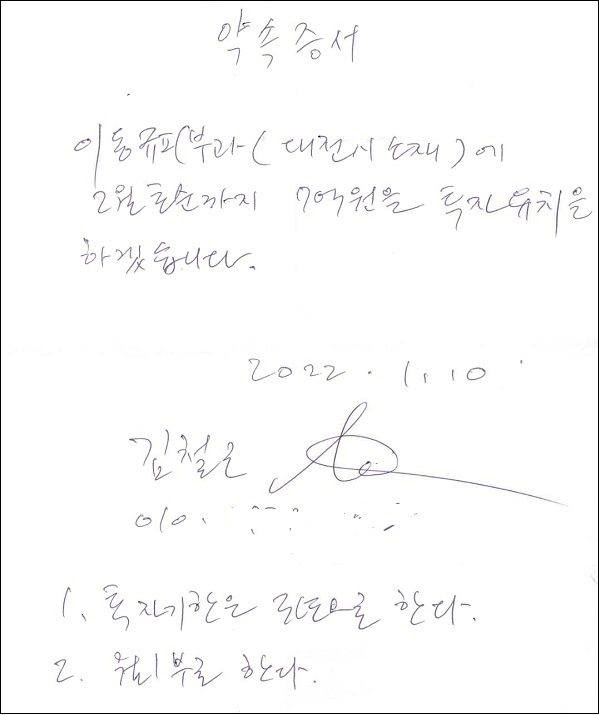 약속증서
이동규피부과(대전시 소재)에
2월 초순까지 7억원을 투자유치를
하겠습니다.
2022. 1. 10
김철근
010.
1. 투자기한은 로 한다.
2. 로 한다.